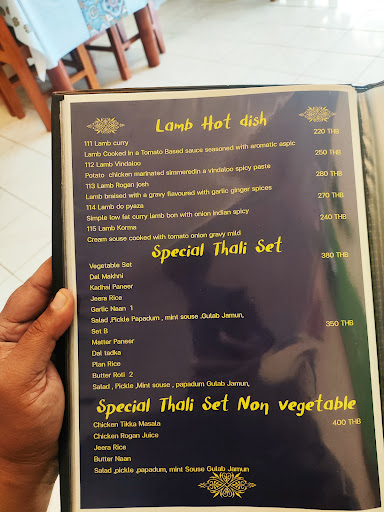 Lamb Hot dish
111 Lamb curry 220 THB
Lamb Cooked In a Tomato Based sauce seasoned with aromatic aspic
112 Lamb Vindaloo 250 THB
Potato chicken marinated simmeredin a vindaloo spicy paste
113 Lamb Rogan josh 280 THB
Lamb braised with a gravy flavoured with garlic ginger spices
114 Lamb do pyaza 270 THB
Simple low fat curry lamb bon with onion Indian spicy
115 Lamb Korma 240 THB
Cream souse cooked with tomato onion gravy mild
Special Thali Set
Vegetable Set 380 THB
Dal Makhni
Kadhai Paneer
Jeera Rice
Garlic Naan 1
Salad ,Pickle Papadum , mint souse .Gulab Jamun,
Set B 350 THB
Matter Paneer
Dal tadka
Plan Rice
Butter Roti 2
Salad , Pickle ,Mint souse , papadum Gulab Jamun,
Special Thali Set Non vegetable
Chicken Tikka Masala 400 THB
Chicken Rogan Juice
Jeera Rice
Butter Naan
Salad ,pickle ,papadum, mint Souse Gulab Jamun